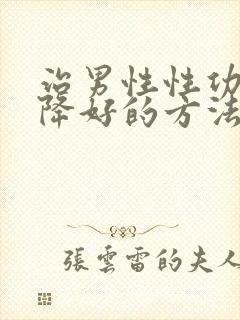 治男性性功
降好的方法
張雲雷的夫人